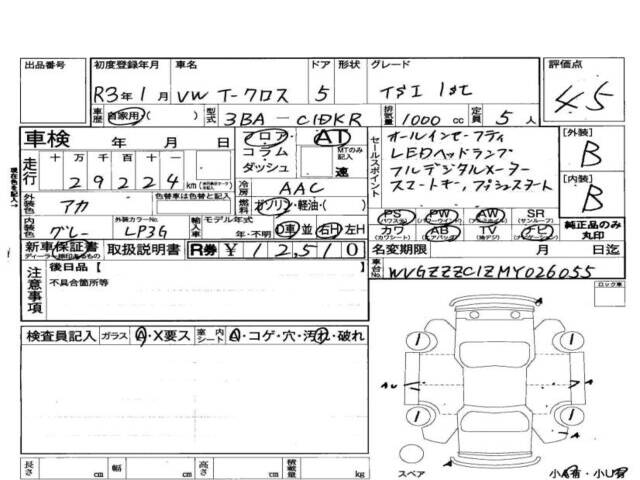 出品番号 初度登録年月 車名 ドア 形状 グレード 評価点
R3年1月 VW T-クロス 5 TSI 1st 4.5
車歴 自家用・( ) 型式 3BA-C1DKR 排気量 1000 cc 定員 5 人
車検 年 月 日 フロア AT セールスポイント オールインセーフティ [外装]
走行 十万 万 千 百 十 一 コラム MTのみ記入 LEDヘッドランプ B
29224 km ダッシュ 速 フルデジタルメーター [内装]
冷房 AAC スマートキー,プッシュスタート B
外装色 アカ 色替車は色替と記入 燃料 ガソリン・軽油・( ) PS PW AW SR
(パワステ) (パワーウインド) (アルミホイール) (サンルーフ)
内装色 グレー 外装カラーNo. LP3G 輸入車 モデル年式 年・不明 D車 並 右H 左H カワ AB TV ナビ 純正品のみ丸印
(カワシート) (エアバッグ) (地デジ) (ナビゲーション)
新車保証書 取扱説明書 R券 ¥12,510 名変期限 月 日迄
ディーラー捺印あるもの
車台No. WVGZZZC1ZMY026055
注意事項 後日品【 】
不具合箇所等
ロック車
検査員記入 ガラス A・X要ス 室内シート A・コゲ・穴・汚れ・破れ
スペア
長さ cm 幅 cm 高さ cm 積載量 kg